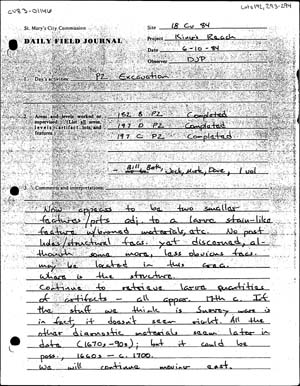 CV83-01146
Lots 192, 293-294
St. Mary's City Commission
DAILY FIELD JOURNAL
Site 18 Cv 84
Project King's Reach
Date 6-10-84
Observer DJP
1. Day's activities: PZ Excavation
2. Areas and levels worked or
supervised: (List all areas,
levels, artifact lots, and
features)
192 B PZ Completed
197 D PZ Completed
197 C PZ Completed
Bill, Beth, Jack, Mark, Dave, 1 vol
3. Comments and interpretations:
Now appears to be two smaller
features/pits adj. to a large stain-like
feature w/burned materials, etc. No post
holes/structural feas. yet discerned, al-
though some more, less obvious feas.
may be located in this area.
Where is the structure.
Continue to retrieve large quantities
of artifacts - all appar. 17th c. If
the stuff we think is Surrey ware is
in fact, it doesn't seem right. All the
other diagnostic materials seem later in
date (1670s-90s); but it could be
poss., 1660s - c. 1700.
We will continue moving east.